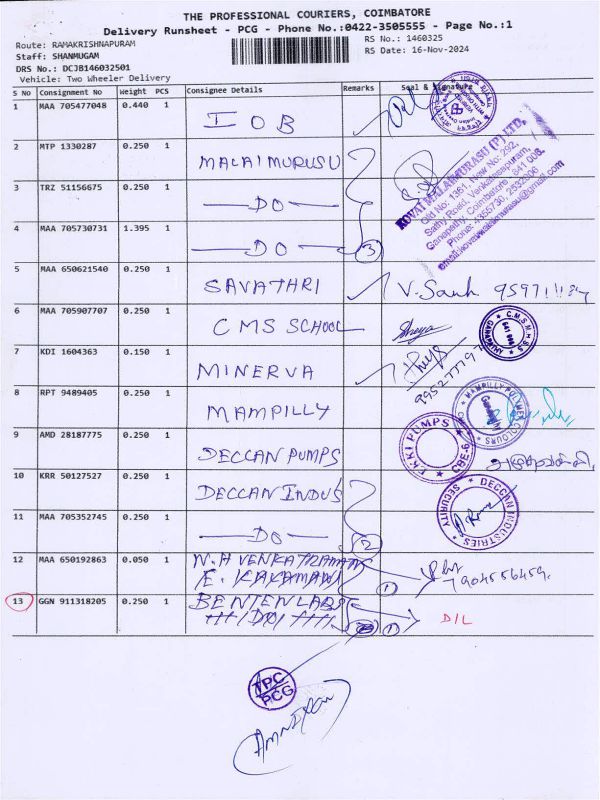 THE PROFESSIONAL COURIERS, COIMBATORE
Delivery Runsheet - PCG - Phone No.:0422-3505555 - Page No.:1
Route: RAMAKRISHNAPURAM
RS No.: 1460325
Staff: SHANMUGAM
RS Date: 16-Nov-2024
DRS No.: DCJB146032501
Vehicle: Two Wheeler Delivery
S No Consignment No Weight PCS Consignee Details Remarks Seal & Signature
1 MAA 705477048 0.440 1 IOB
2 MTP 1330287 0.250 1 MALAIMURUSU
3 TRZ 51156675 0.250 1 DO
4 MAA 705730731 1.395 1 DO 3
KOVAI MALAIMURASU (P) LTD,
Old No: 1361, New No: 292,
Sathy Road, Venkatesapuram,
Ganapathy, Coimbatore - 641 006.
5 MAA 650621540 0.250 1 SAVATHRI V.
6 MAA 705907707 0.250 1 CMS SCHOOL
C.M.S.M.H.S.S
7 KDI 1604363 0.150 1 MINERVA
8 RPT 9489405 0.250 1 MAMPILLY
9 AMD 28187775 0.250 1 DECCAN PUMPS
EKKI PUMPS CBE-6
10 KRR 50127527 0.250 1 DECCAN INDUS
DECCAN INDUSTRIES SECURITY
11 MAA 705352745 0.250 1 DO 2
12 MAA 650192863 0.050 1 N.A VENKATRAMAN
1 7904556459.
13 GGN 911318205 0.250 1 BENTENLABS 1 D/L
TPC
PCG